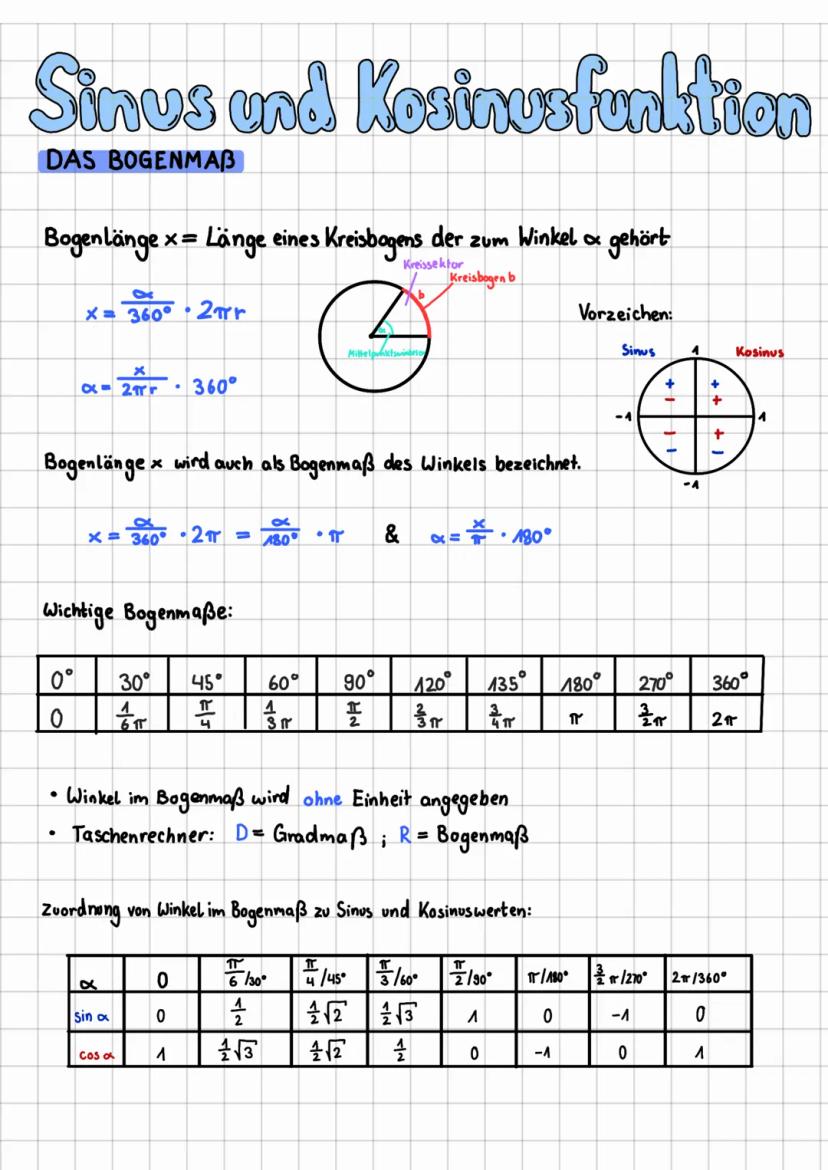 Sinus und Kosinusfunktion
DAS BOGENMAß
Bogenlänge x = Länge eines Kreisbogens der zum Winkel α gehört
Kreissektor
Kreisbogen b
b
α
Mittelpunktswinkel
x = α/360° · 2πr
α = x/2πr · 360°
Vorzeichen:
Sinus 1 Kosinus
+ +
- +
-1 1
- +
- -
-1
Bogenlänge x wird auch als Bogenmaß des Winkels bezeichnet.
x = α/360° · 2π = α/180° · π & α = x/π · 180°
Wichtige Bogenmaße:
0° 30° 45° 60° 90° 120° 135° 180° 270° 360°
0 1/6π π/4 1/3π π/2 2/3π 3/4π π 3/2π 2π
• Winkel im Bogenmaß wird ohne Einheit angegeben
• Taschenrechner: D = Gradmaß ; R = Bogenmaß
Zuordnung von Winkel im Bogenmaß zu Sinus und Kosinuswerten:
α 0 π/6 /30° π/4 /45° π/3 /60° π/2 /90° π/180° 3/2 π/270° 2π/360°
sin α 0 1/2 1/2√2 1/2√3 1 0 -1 0
cos α 1 1/2√3 1/2√2 1/2 0 -1 0 1